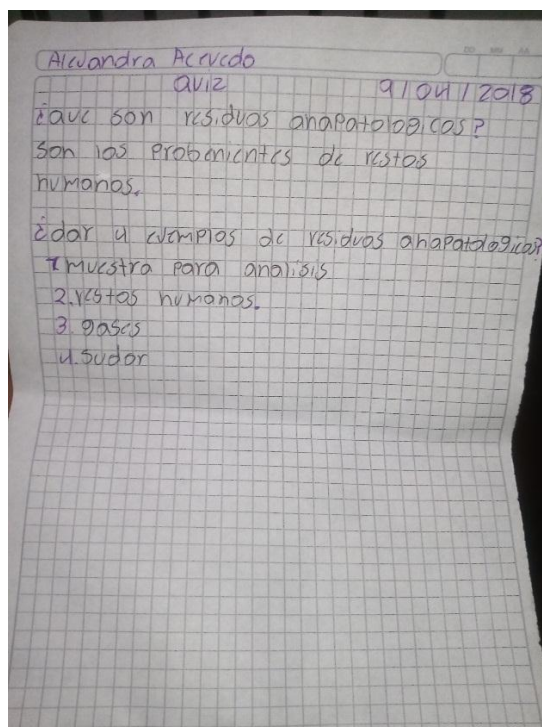 Alejandra Acevedo
quiz 9/04/2018
¿que son residuos anapatologicos?
son los probenientes de restos
humanos.
¿dar 4 ejemplos de residuos anapatologicos?
1 muestra para analisis
2. restos humanos.
3. gases
4. sudor